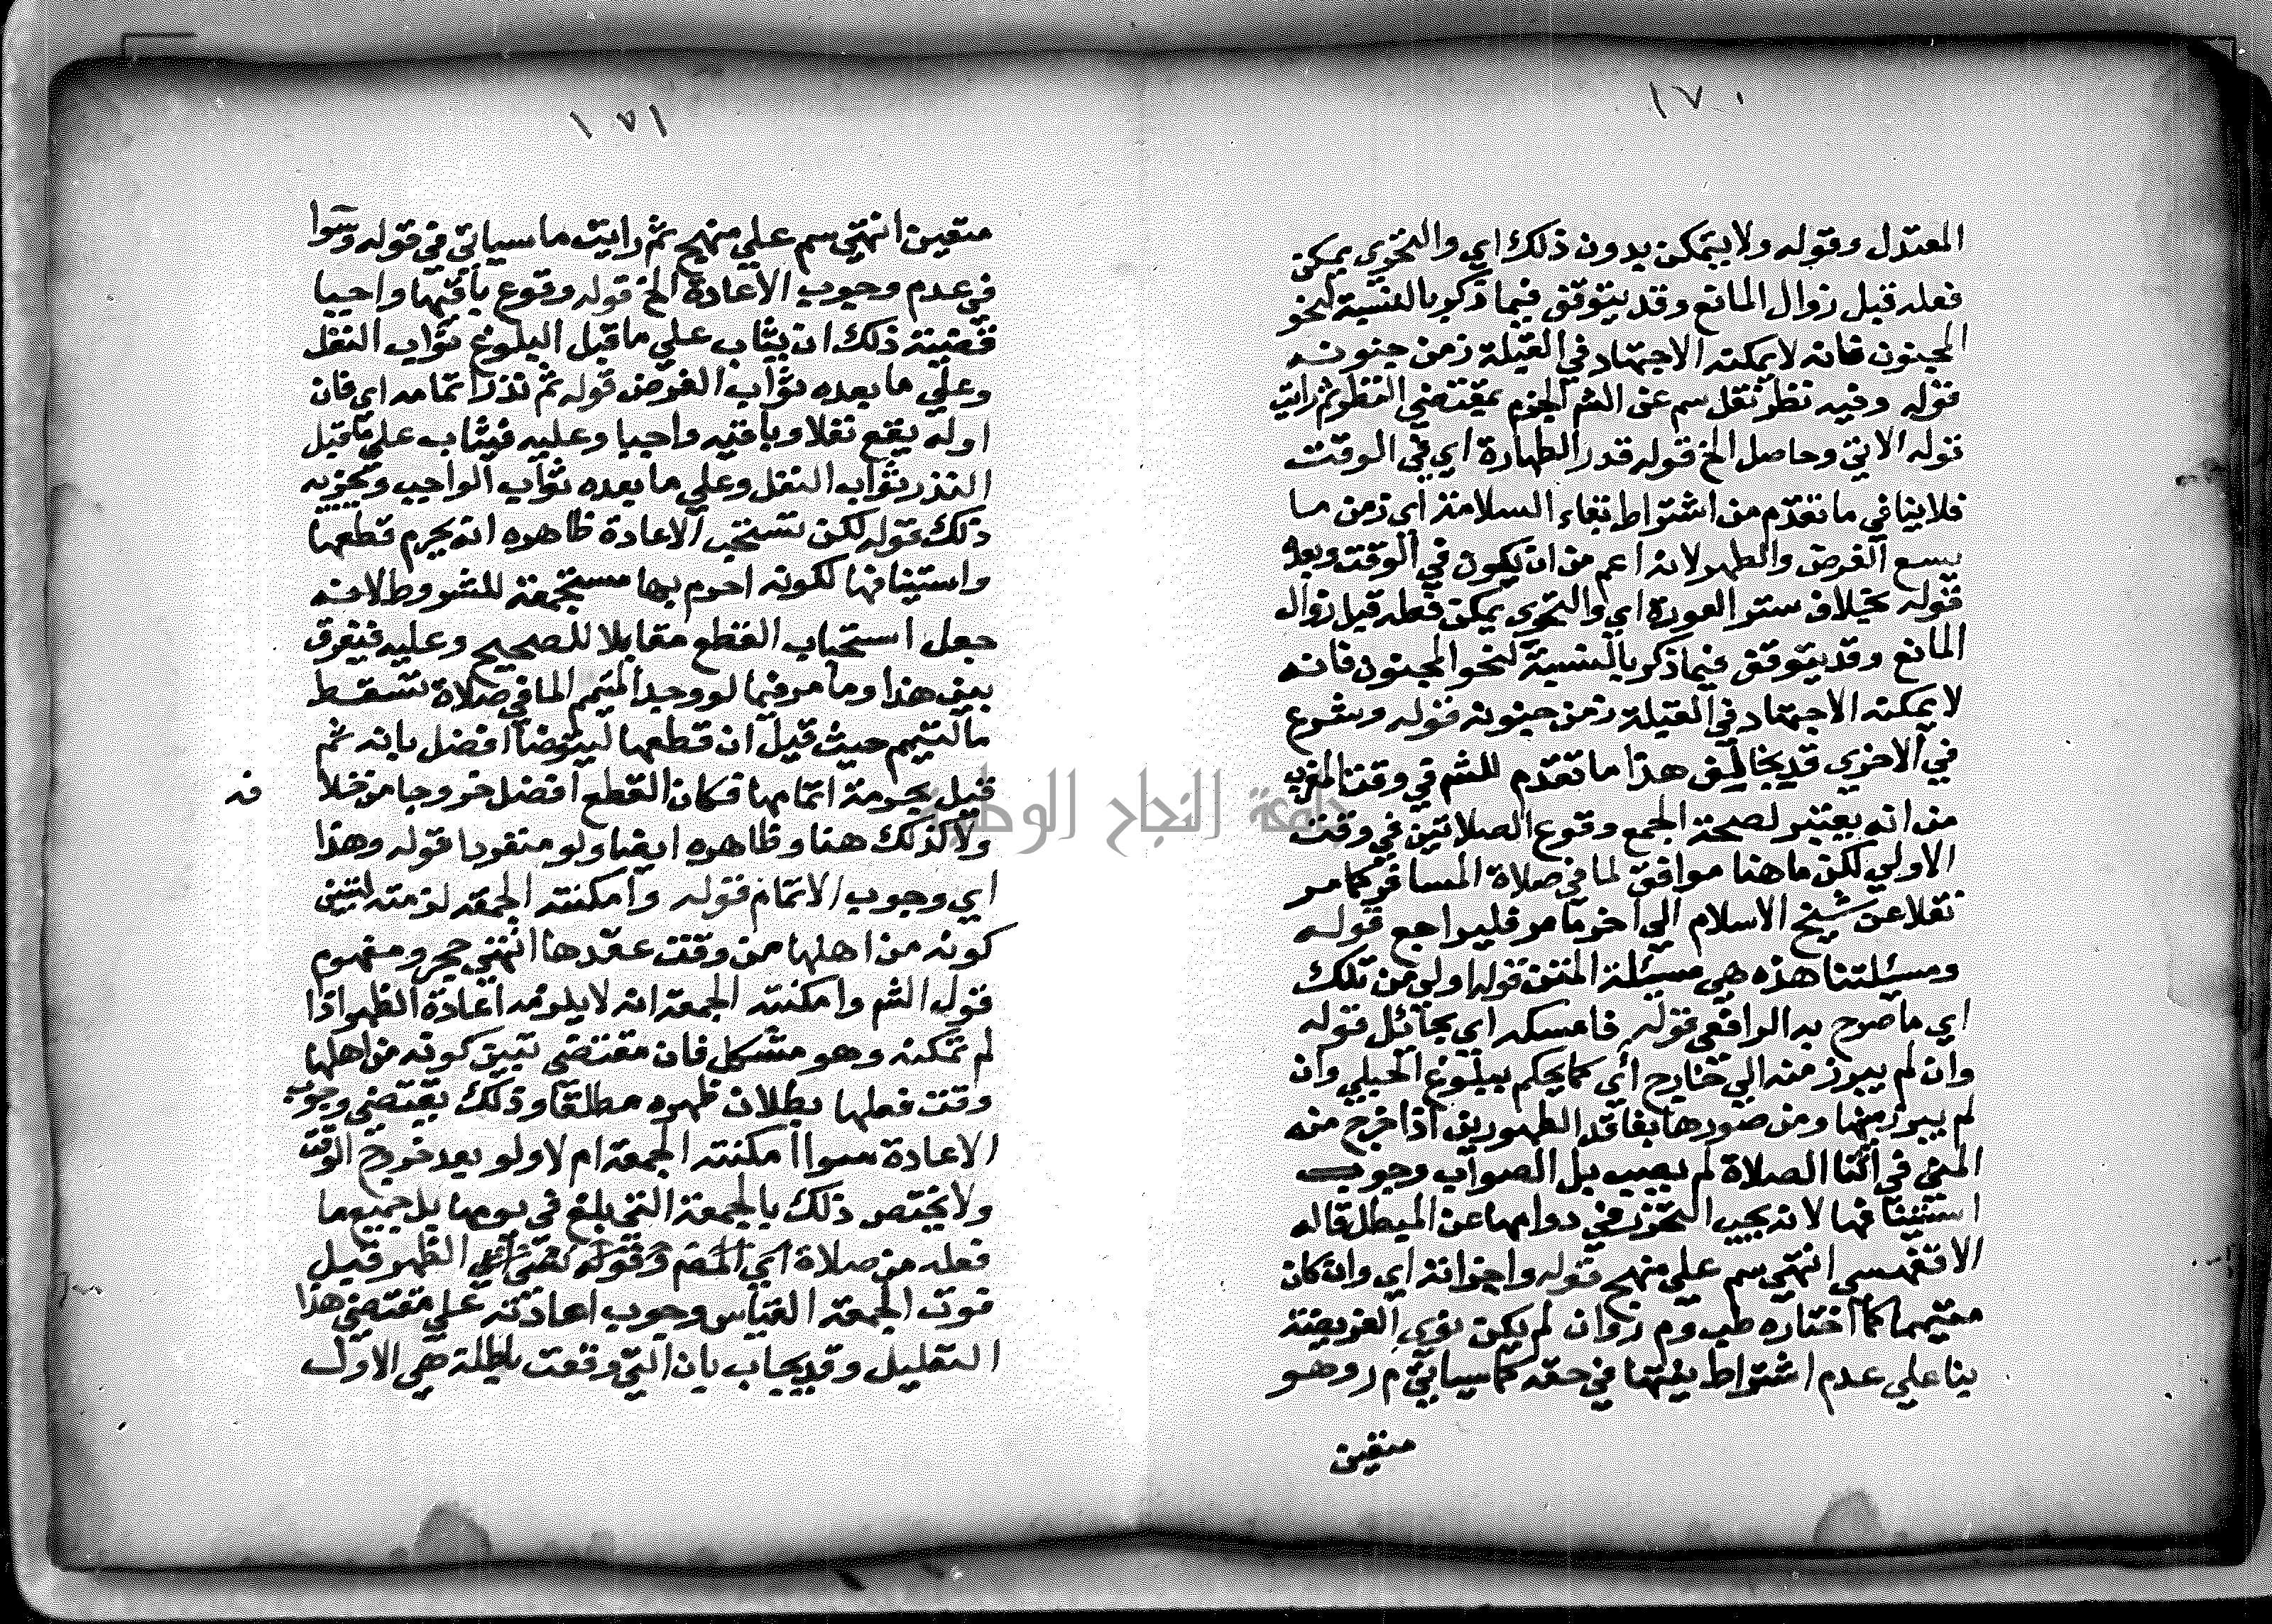 ١٧٠
المعتدل وقوله ولا يتمكن بدون ذلك اي والتحري يمكن
فعله قبل زوال المانع وقد يتوقف فيما ذكر بالنسبة لنحو
المجنون فانه لا يمكنه الاجتهاد في القبلة زمن جنونه
قوله وفيه نظر نقل سم عن الشم الجزم بمقتضي النظر ثم رايت
قوله الاتي وحاصل الخ قوله قدر الطهارة اي في الوقت
فلا ينافي ما تقدم من اشتراط بقاء السلامة اي زمن ما
يسع الفرض والطهر لانه اعم من ان يكون في الوقت وبعده
قوله بخلاف ستر العورة اي والتحري يمكن فعله قبل زوال
المانع وقد يتوقف فيما ذكر بالنسبة لنحو المجنون فانه
لا يمكنه الاجتهاد في القبلة زمن جنونه قوله وشرع
في الاخري قد يخالف هذا ما تقدم للشم في وقت المغرب
من انه يعتبر لصحة الجمع وقوع الصلاتين في وقت
الاولي لكن ما هنا موافق لما في صلاة المسافر كما مر
نقلا عن شيخ الاسلام الي اخر ما مر فليراجع قوله
ومسئلتنا هذه هي مسئلة المتن قوله اولي من تلك
اي ما صرح به الرافعي قوله فامسكه اي بحائل قوله
وان لم يبرز منه الي خارج اي كما يحكم ببلوغ الحبلي وان
لم يبرز منها ومن صورها بفاقد الطهورين اذا خرج منه
المني في اثنا الصلاة لم يصب بل الصواب وجوب
استينافها لانه يجب التحرز في دوامها عن المبطل قاله
الاقفهسي انتهي سم علي منهج قوله واجزاته اي وان كان
متيمما كما اختاره طب وم ر وان لم يكن نوي الفريضة
بنا علي عدم اشتراط نيتها في حقه كما سياتي م ر وهو
متعين
١٧١
متعين انتهي سم علي منهج ثم رايت ما سياتي في قوله وسوا
في عدم وجوب الاعادة الخ قوله وقوع باقيها واجبا
قضيته ذلك ان يثاب علي ما قبل البلوغ ثواب النفل
وعلي ما بعده ثواب الفرض قوله ثم نذر اتمامه اي فان
اوله يقع نفلا وباقيه واجبا وعليه فيثاب علي ما قبل
النذر ثواب النفل وعلي ما بعده ثواب الواجب ويجزيه
ذلك قوله لكن تستحب الاعادة ظاهره انه يحرم قطعها
واستينافها لكونه احرم بها مستجمعة للشروط لانه
جعل استحباب القطع مقابلا للصحيح وعليه فيفرق
بين هذا وما مر فيما لو وجد المتيمم الما في صلاة تسقط
بالتيمم حيث قيل ان قطعها ليتوضا افضل بانه ثم
قيل بحرمة اتمامها فكان القطع افضل خروجا من خلا
فه
ولا كذلك هنا وظاهره ايضا ولو منفردا قوله وهذا
اي وجوب الاتمام قوله وامكنته الجمعة لزمته لتبين
كونه من اهلها من وقت عقدها انتهي حجر ومفهوم
قول الشم وامكنته الجمعة انه لا يلزمه اعادة الظهر اذا
لم تمكنه وهو مشكل فان مقتضي تبين كونه من اهلها
وقت فعلها بطلان ظهره مطلقا وذلك يقتضي وجوب
الاعادة سوا امكنته الجمعة ام لا ولو بعد خروج الوقت
ولا يختص ذلك بالجمعة التي بلغ في يومها بل جميع ما
فعله من صلاة الظهر قبل
فوت الجمعة القياس وجوب اعادته علي مقتضي هذا
التعليل وقد يجاب بان التي وقعت باطلة هي الاول